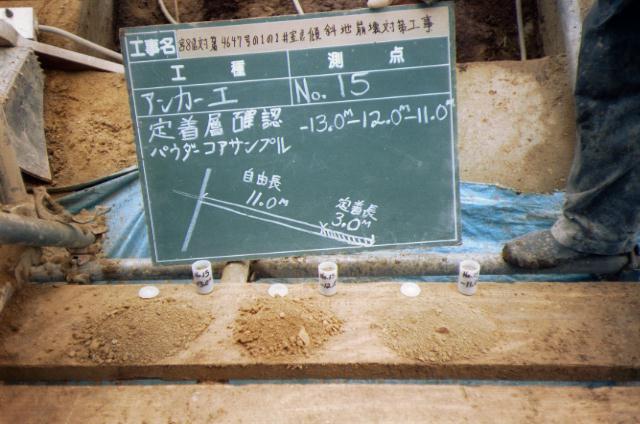 工事名 第8急対第4647号の1の2 井室急傾斜地崩壊対策工事
工種 測点
アンカー工 No.15
定着層確認 -13.0m -12.0m -11.0m
パウダーコアサンプル
自由長
11.0m
定着長
3.0m
No.15 No.15 No.
-13.0 -12.0 -11.0